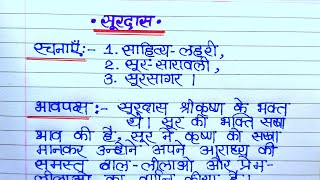 • सूरदास •
रचनाएँ:- 1. साहित्य-लहरी,
2. सूर-सारावली,
3. सूरसागर ।
भावपक्ष:- सूरदास श्रीकृष्ण के भक्त
थे। सूर की भक्ति सखा
भाव की है, सूर ने कृष्ण को सखा
मानकर उन्होंने अपने आराध्य की
समस्त बाल-लीलाओं और प्रेम-
लीलाओं का वर्णन किया है।